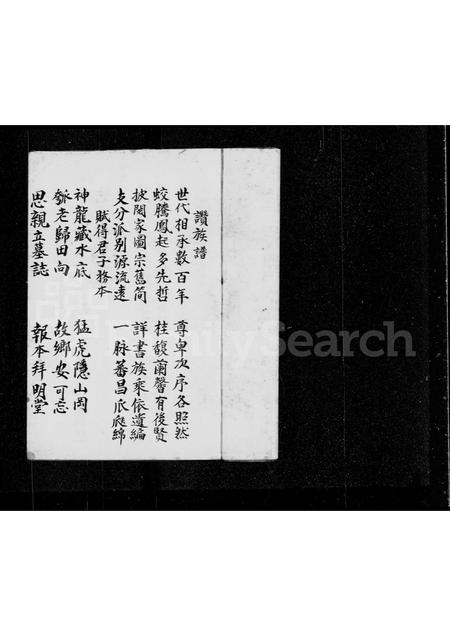 讚族譜
世代相承數百年 尊卑次序各照然
蛟騰鳳起多先哲 桂馥蘭馨有後賢
披閱家圖宗舊簡 詳書族乘依遺編
支分派别源流遠 一脉蕃昌瓜瓞綿
賦得君子務本
神龍藏水底 猛虎隱山岡
老歸田向 故鄉安可忘
思親立墓誌 報本拜明堂
FamilySearch